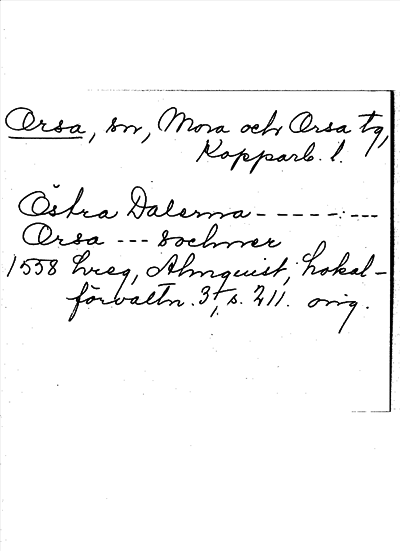 Orsa, sn, Mora och Orsa tg,
Kopparb. l.
Östra Dalerna - - - - - : - - -
Orsa - - - sochner
1558 hreg, Almquist, Lokal-
förvaltn. 3, s. 211. orig.